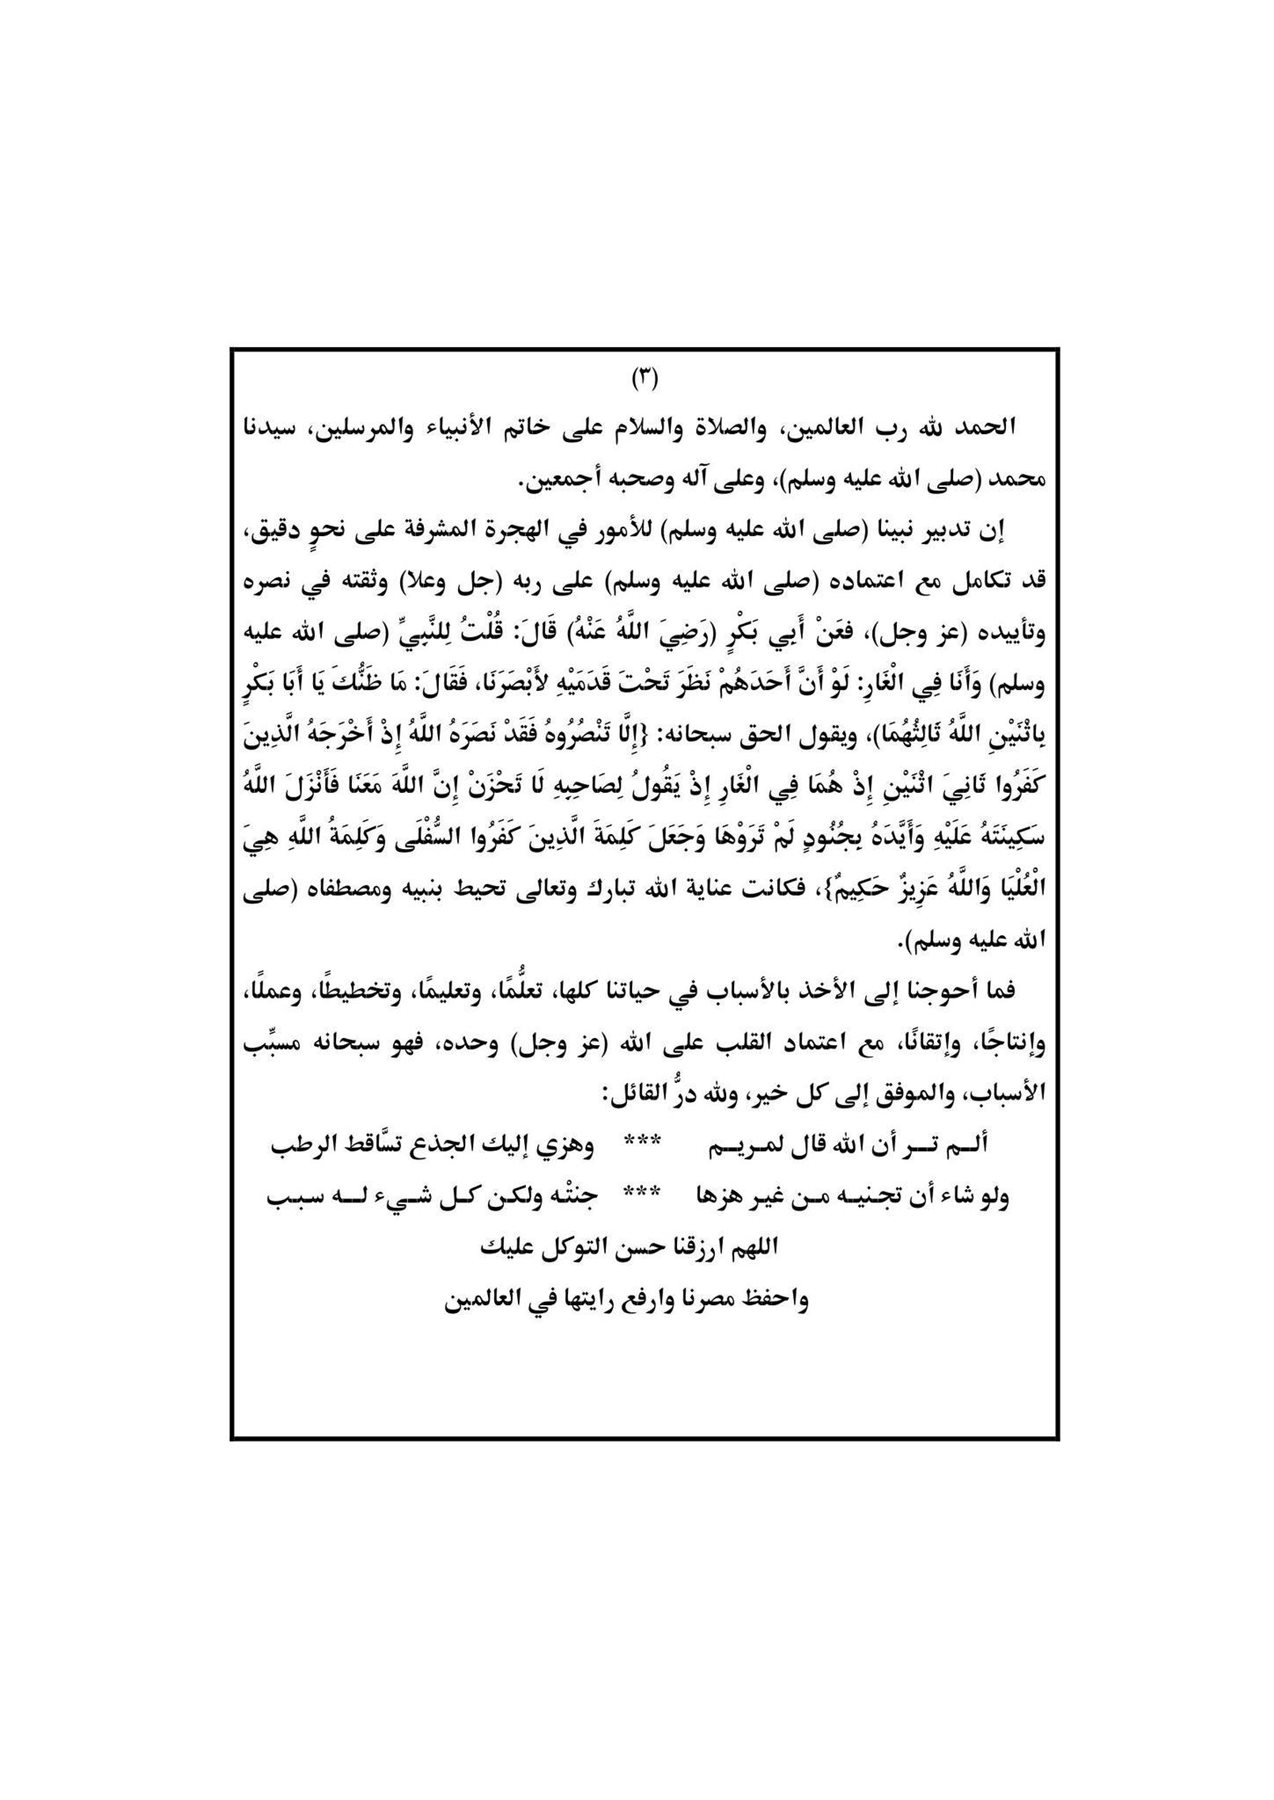 (٣)
الحمد لله رب العالمين، والصلاة والسلام على خاتم الأنبياء والمرسلين، سيدنا
محمد (صلى الله عليه وسلم)، وعلى آله وصحبه أجمعين.
إن تدبير نبينا (صلى الله عليه وسلم) للأمور في الهجرة المشرفة على نحوٍ دقيق،
قد تكامل مع اعتماده (صلى الله عليه وسلم) على ربه (جل وعلا) وثقته في نصره
وتأييده (عز وجل)، فعَنْ أَبِي بَكْرٍ (رَضِيَ اللَّهُ عَنْهُ) قَالَ: قُلْتُ لِلنَّبِيِّ (صلى الله عليه
وسلم) وَأَنَا فِي الْغَارِ: لَوْ أَنَّ أَحَدَهُمْ نَظَرَ تَحْتَ قَدَمَيْهِ لأَبْصَرَنَا، فَقَالَ: مَا ظَنُّكَ يَا أَبَا بَكْرٍ
بِاثْنَيْنِ اللَّهُ ثَالِثُهُمَا)، ويقول الحق سبحانه: {إِلَّا تَنْصُرُوهُ فَقَدْ نَصَرَهُ اللَّهُ إِذْ أَخْرَجَهُ الَّذِينَ
كَفَرُوا ثَانِيَ اثْنَيْنِ إِذْ هُمَا فِي الْغَارِ إِذْ يَقُولُ لِصَاحِبِهِ لَا تَحْزَنْ إِنَّ اللَّهَ مَعَنَا فَأَنْزَلَ اللَّهُ
سَكِينَتَهُ عَلَيْهِ وَأَيَّدَهُ بِجُنُودٍ لَمْ تَرَوْهَا وَجَعَلَ كَلِمَةَ الَّذِينَ كَفَرُوا السُّفْلَى وَكَلِمَةُ اللَّهِ هِيَ
الْعُلْيَا وَاللَّهُ عَزِيزٌ حَكِيمٌ}، فكانت عناية الله تبارك وتعالى تحيط بنبيه ومصطفاه (صلى
الله عليه وسلم).
فما أحوجنا إلى الأخذ بالأسباب في حياتنا كلها، تعلُّمًا، وتعليمًا، وتخطيطًا، وعملًا،
وإنتاجًا، وإتقانًا، مع اعتماد القلب على الله (عز وجل) وحده، فهو سبحانه مسبِّب
الأسباب، والموفق إلى كل خير، ولله درُّ القائل:
ألــم تــر أن الله قال لمـريــم *** وهزي إليك الجذع تسَّاقط الرطب
ولو شاء أن تجـنيــه مـن غيـر هزها *** جنتْـه ولكـن كـل شـيء لــه سـبـب
اللهم ارزقنا حسن التوكل عليك
واحفظ مصرنا وارفع رايتها في العالمين